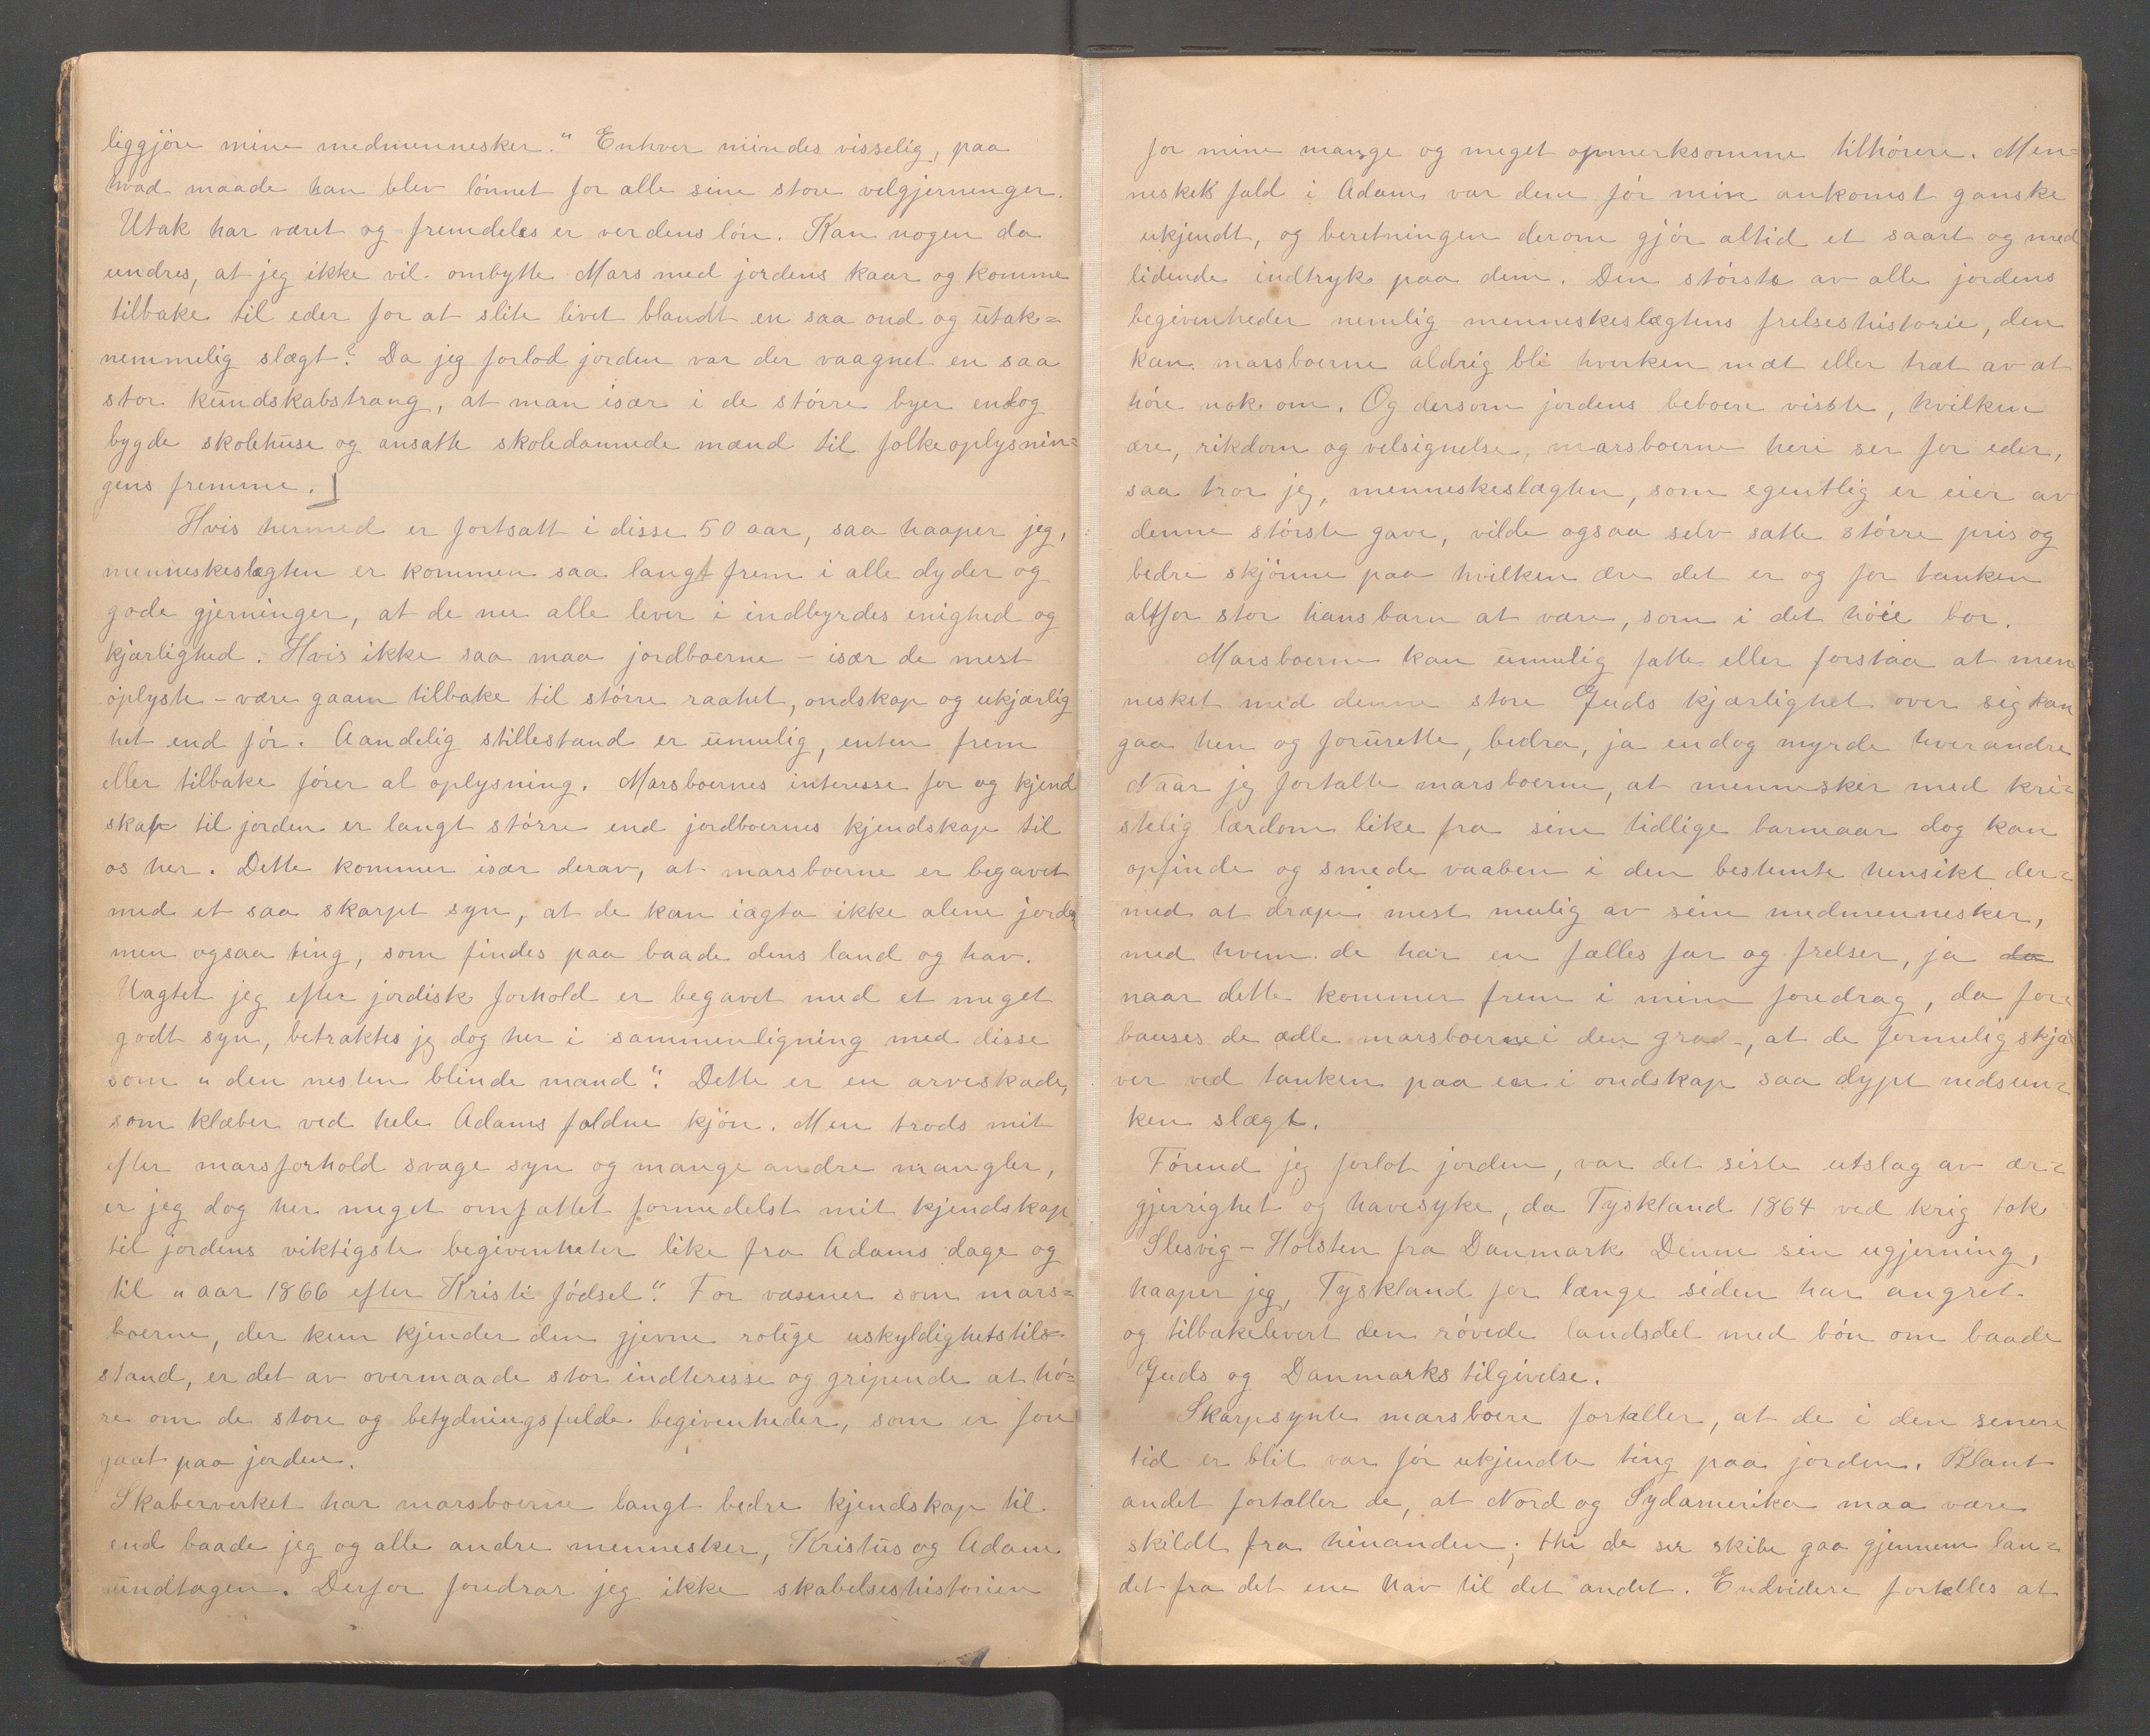 liggjöre mine medmennesker." Enhver mindes visselig, paa
hvad maade han blev lönnet for alle sine store velgjerninger.
Utak har været og fremdeles er verdens lön. Kan nogen da
undres, at jeg ikke vil ombytte Mars med jordens kaar og komme
tilbake til eder for at slite livet blandt en saa ond og utak=
nemmelig slægt? Da jeg forlod jorden var der vaagnet en saa
stor kundskabstrang, at man især i de större byer endog
bygde skolehuse og ansatte skoledannede mænd til folkeoplysnin=
gens fremme.]
Hvis hermed er fortsatt i disse 50 aar, saa haaper jeg,
menneskeslegten er kommen saa langt frem i alle dyder og
gode gjerninger, at de nu alle lever i indbyrdes enighed og
kjærlighed. Hvis ikke saa maa jordboerne - især de mest
oplyste - være gaaen tilbake til större raahet, ondskap og ukjærlig
het end för. Aandelig stillestand er umulig, enten frem
eller tilbake förer al oplysning. Marsboernes interesse for og kjend
skap til jorden er langt större end jordboernes kjendskap til
os her. Dette kommer især derav, at marsboerne er begavet
med et saa skarpt syn, at de kan iagta ikke alene jorden
men ogsaa ting, som findes paa baade dens land og hav.
Uagtet jeg efter jordisk forhold er begavet med et meget
godt syn, betraktes jeg dog her i sammenligning med disse
som „den nesten blinde mand". Dette er en arveskade,
som klæber ved hele Adams faldne kjön. Men trods mit
efter marsforhold svage syn og mange andre mangler,
er jeg dog her meget omfattet formedelst mit kjendskap
til jordens viktigste begivenheter like fra Adams dage og
til „aar 1866 efter Kristi födsel". For væsener som mars=
boerne, der kun kjender den gjevne rolige uskyldighetstils=
stand, er det av overmaade stor indteresse og gripende at hö=
re om de store og betydningsfulde begivenheder, som er fore
gaat paa jorden.
Skaberverket har marsboerne langt bedre kjendskap til
end baade jeg og alle andre mennesker, Kristus og Adam
undtagen. Derfor foredrar jeg ikke skabelseshistorien
for mine mange og meget opmerksomme tilhörere. Men=
neskets fald i Adam var dem för min ankomst ganske
ukjendt, og beretningen derom gjör altid et saart og med
lidende indtryk paa dem. Den störste av alle jordens
begivenheder nemlig menneskeslægtens frelseshistorie, den
kan marsboerne aldrig bli hverken mæt eller træt av at
höre nok om. Og dersom jordens beboere visste, hvilken
ære, rikdom og velsignelse, marsboerne heri ser for eder,
saa tror jeg, menneskeslægten, som egentlig er eier av
denne störste gave, vilde ogsaa selv sætte större pris og
bedre skjönne paa hvilken ære det er og for tanken
altfor stor hans barn at være, som i det höie bor.
Marsboerne kan umulig fatte eller forstaa at men
nesket med denne store Guds kjærlighet over sig kan
gaa hen og forurette, bedra, ja endog myrde hverandre
Naar jeg fortalte marsboerne, at mennesker med kri=
stelig lærdom like fra sine tidlige barneaar dog kan
opfinde og smede vaaben i den bestemte hensikt der=
med at dræpe mest mulig av sine medmennesker,
med hvem de har en fælles far og frelser, ja da
naar dette kommer frem i mine foredrag, da for=
bauses de ædle marsboere i den grad, at de formelig skjæl
ver ved tanken paa en i ondskap saa dypt nedsun=
ken slægt.
Förend jeg forlot jorden, var det siste utslag av ær=
gjerrighet og havesyke, da Tyskland 1864 ved krig tok
Slesvig - Holsten fra Danmark. Denne sin ugjerning,
haaper jeg, Tyskland for længe siden har angret
og tilbakelevert den rövede landsdel med bön om baade
Guds og Danmarks tilgivelse.
Skarpsynte marsboere fortæller, at de i den senere
tid er blit var för ukjendte ting paa jorden. Blant
andet fortæller de, at Nord og Sydamerika maa være
skildt fra hinanden; thi de ser skibe gaa gjennem lan=
det fra det ene hav til det andet. Endvidere fortælles at